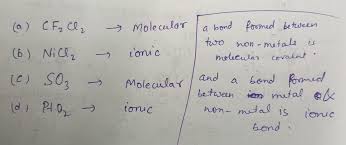 (a) CF₂Cl₂ → Molecular
(b) NiCl₂ → ionic
(c) SO₃ → Molecular
(d) PtO₂ → ionic
a bond formed between
two non-metals is
molecular covalent.
and a bond formed
between metal &
non-metal is ionic
bond.